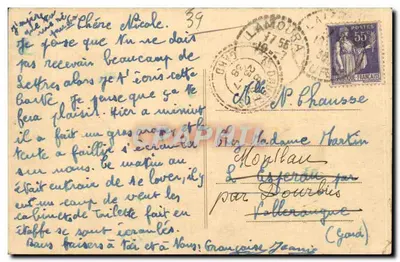 39
Chère Nicole.
Je pense que tu ne dois
pas recevoir beaucoup de
lettres alors je t'écris cette
carte. Je pense que ça te
fera plaisir. Hier à minuit
il a fait un gros
tente a failli s'écrouler
sur nous. Le matin on
était entrain de se lever, il y
eut un coup de vent les
cabinets de toilette fait en
étoffe se sont écroulés.
Bons baisers à toi et à Nous. Françoise
LAMOURA
17 35
55
Mlle N. Chausse
Madame Martin
L'Esperou par
par Dourbies
Valleraugue
(Gard)